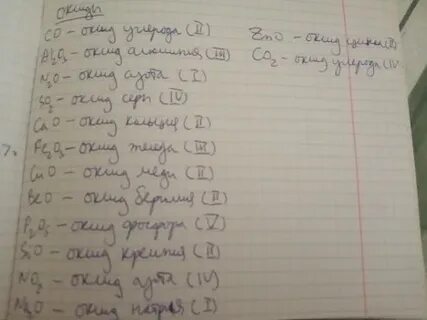 Оксиды
CO – оксид углерода (II)
Al₂O₃ – оксид алюминия (III)
N₂O – оксид азота (I)
SO₂ – оксид серы (IV)
CaO – оксид кальция (II)
Fe₂O₃ – оксид железа (III)
CuO – оксид меди (II)
BeO – оксид берилия (II)
P₂O₅ – оксид фосфора (V)
SiO – оксид кремния (II)
NO₂ – оксид азота (IV)
Na₂O – оксид натрия (I)
ZnO – оксид цинка (II)
CO₂ – оксид углерода (IV)